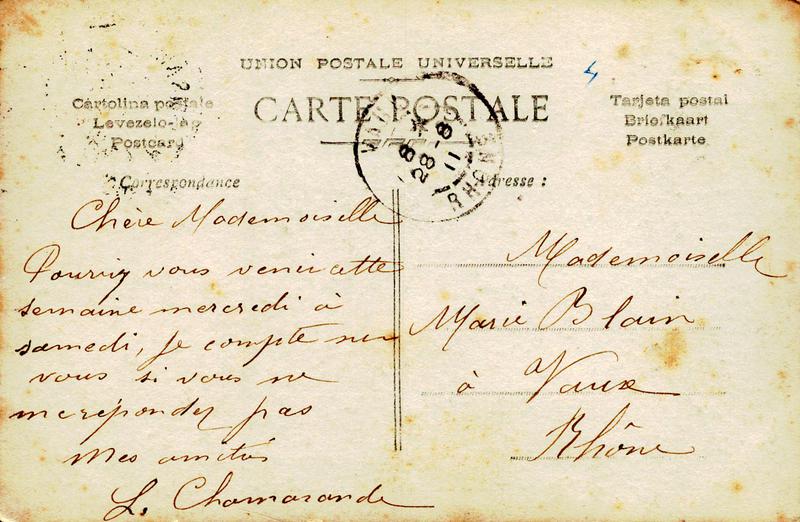 UNION POSTALE UNIVERSELLE
4
CARTE POSTALE
Cartolina postale
Levezelo-lap
Postcard
Tarjeta postal
Briefkaart
Postkarte
8 * 28-8 11
RHONE
Correspondance
Adresse :
Chère Mademoiselle
Pourriez vous venir cette
semaine mercredi à
samedi, je compte sur
vous si vous ne
me répondez pas
Mes amitiés
L. Chamarande
Mademoiselle
Marie Blain
à Vaux
Rhône